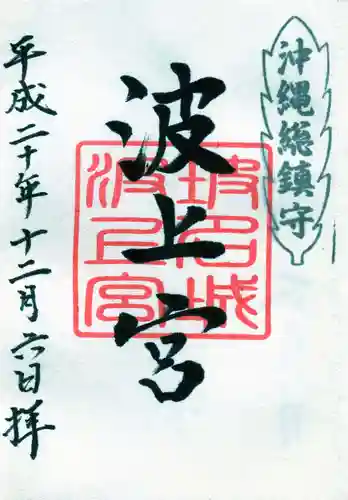 沖縄総鎮守
波上宮
波上宮
平成二十年十二月六日拝